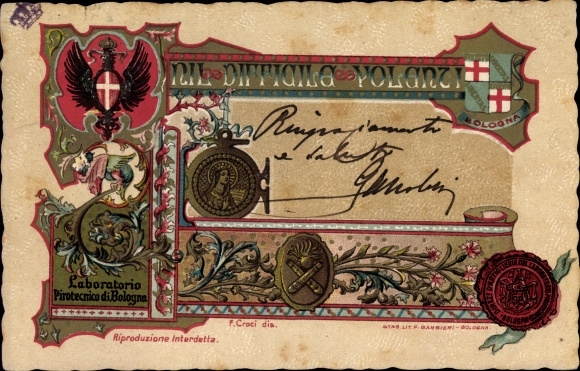 NIL DIFFICILE VOLENTI
BOLOGNA
Ringraziamenti
e saluti
Laboratorio
Pirotecnico di Bologna
F. Croci dis.
STAB. LIT. F. BARBIERI - BOLOGNA
Riproduzione Interdetta.